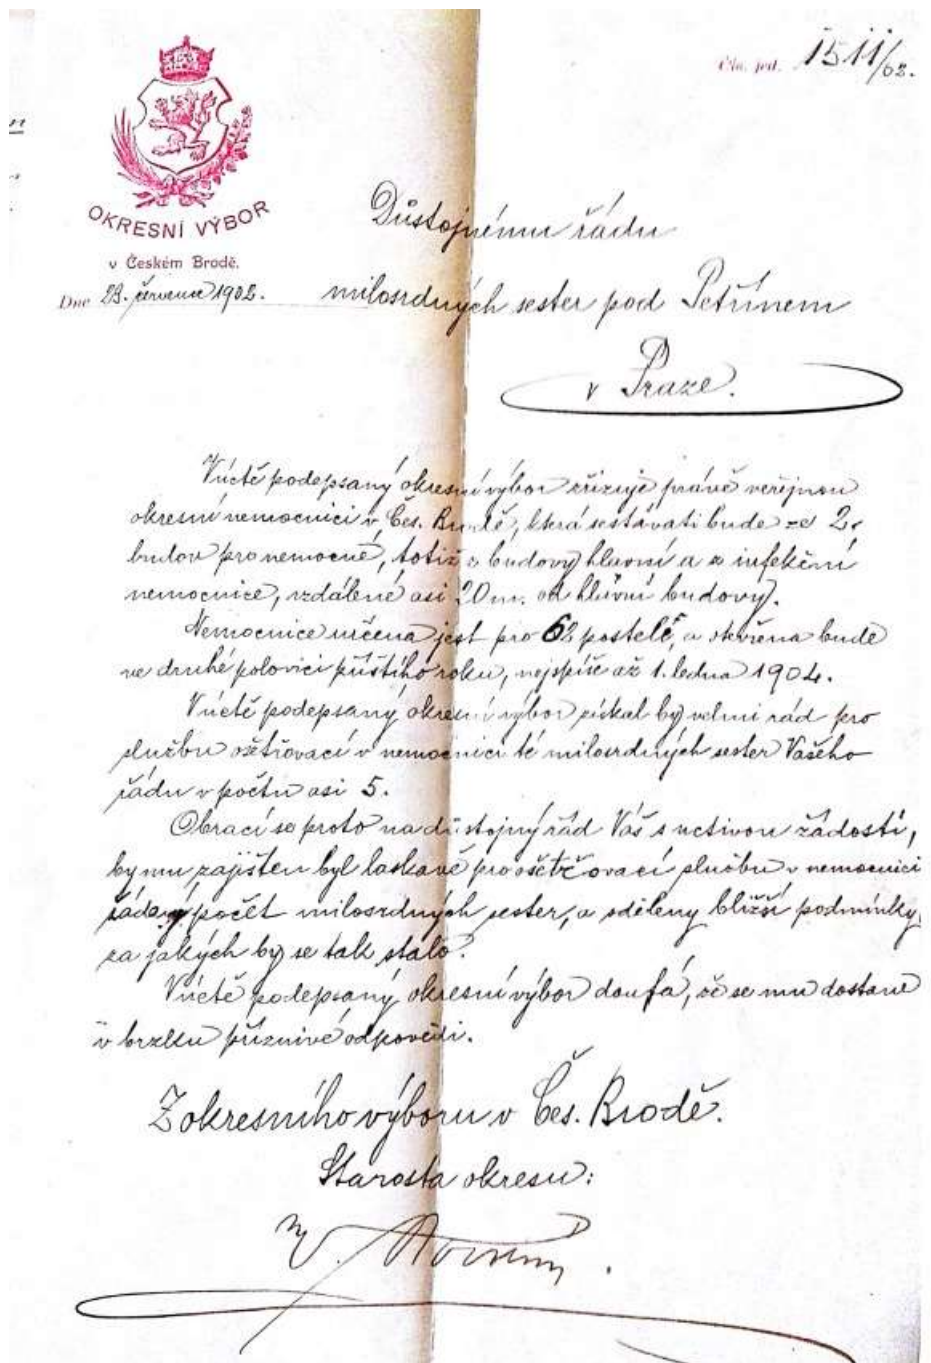 Čís. jed. 1511/02.
OKRESNÍ VÝBOR
v Českém Brodě.
Dne 23. července 1902.
Důstojnému řádu
milosrdných sester pod Petřínem
v Praze.
V úctě podepsaný okresní výbor zřizuje právě veřejnou
okresní nemocnici v Čes. Brodě, která sestávati bude ze 2
budov pro nemocné, totiž z budovy hlavní a z infekční
nemocnice, vzdálené asi 20 m. od hlavní budovy.
Nemocnice určena jest pro 62 postelě, a otevřena bude
ve druhé polovici příštího roku, nejspíše až 1. ledna 1904.
V úctě podepsaný okresní výbor získal by velmi rád pro
službu ošetřovací v nemocnici té milosrdných sester Vašeho
řádu v počtu asi 5.
Obrací se proto na důstojný řád Váš s uctivou žádostí,
by mu zajištěn byl laskavě pro ošetřovací službu v nemocnici
žádaný počet milosrdných sester, a sděleny bližší podmínky,
za jakých by se tak stalo.
V úctě podepsaný okresní výbor doufá, že se mu dostane
v brzku příznivé odpovědi.
Z okresního výboru v Čes. Brodě.
Starosta okresu: